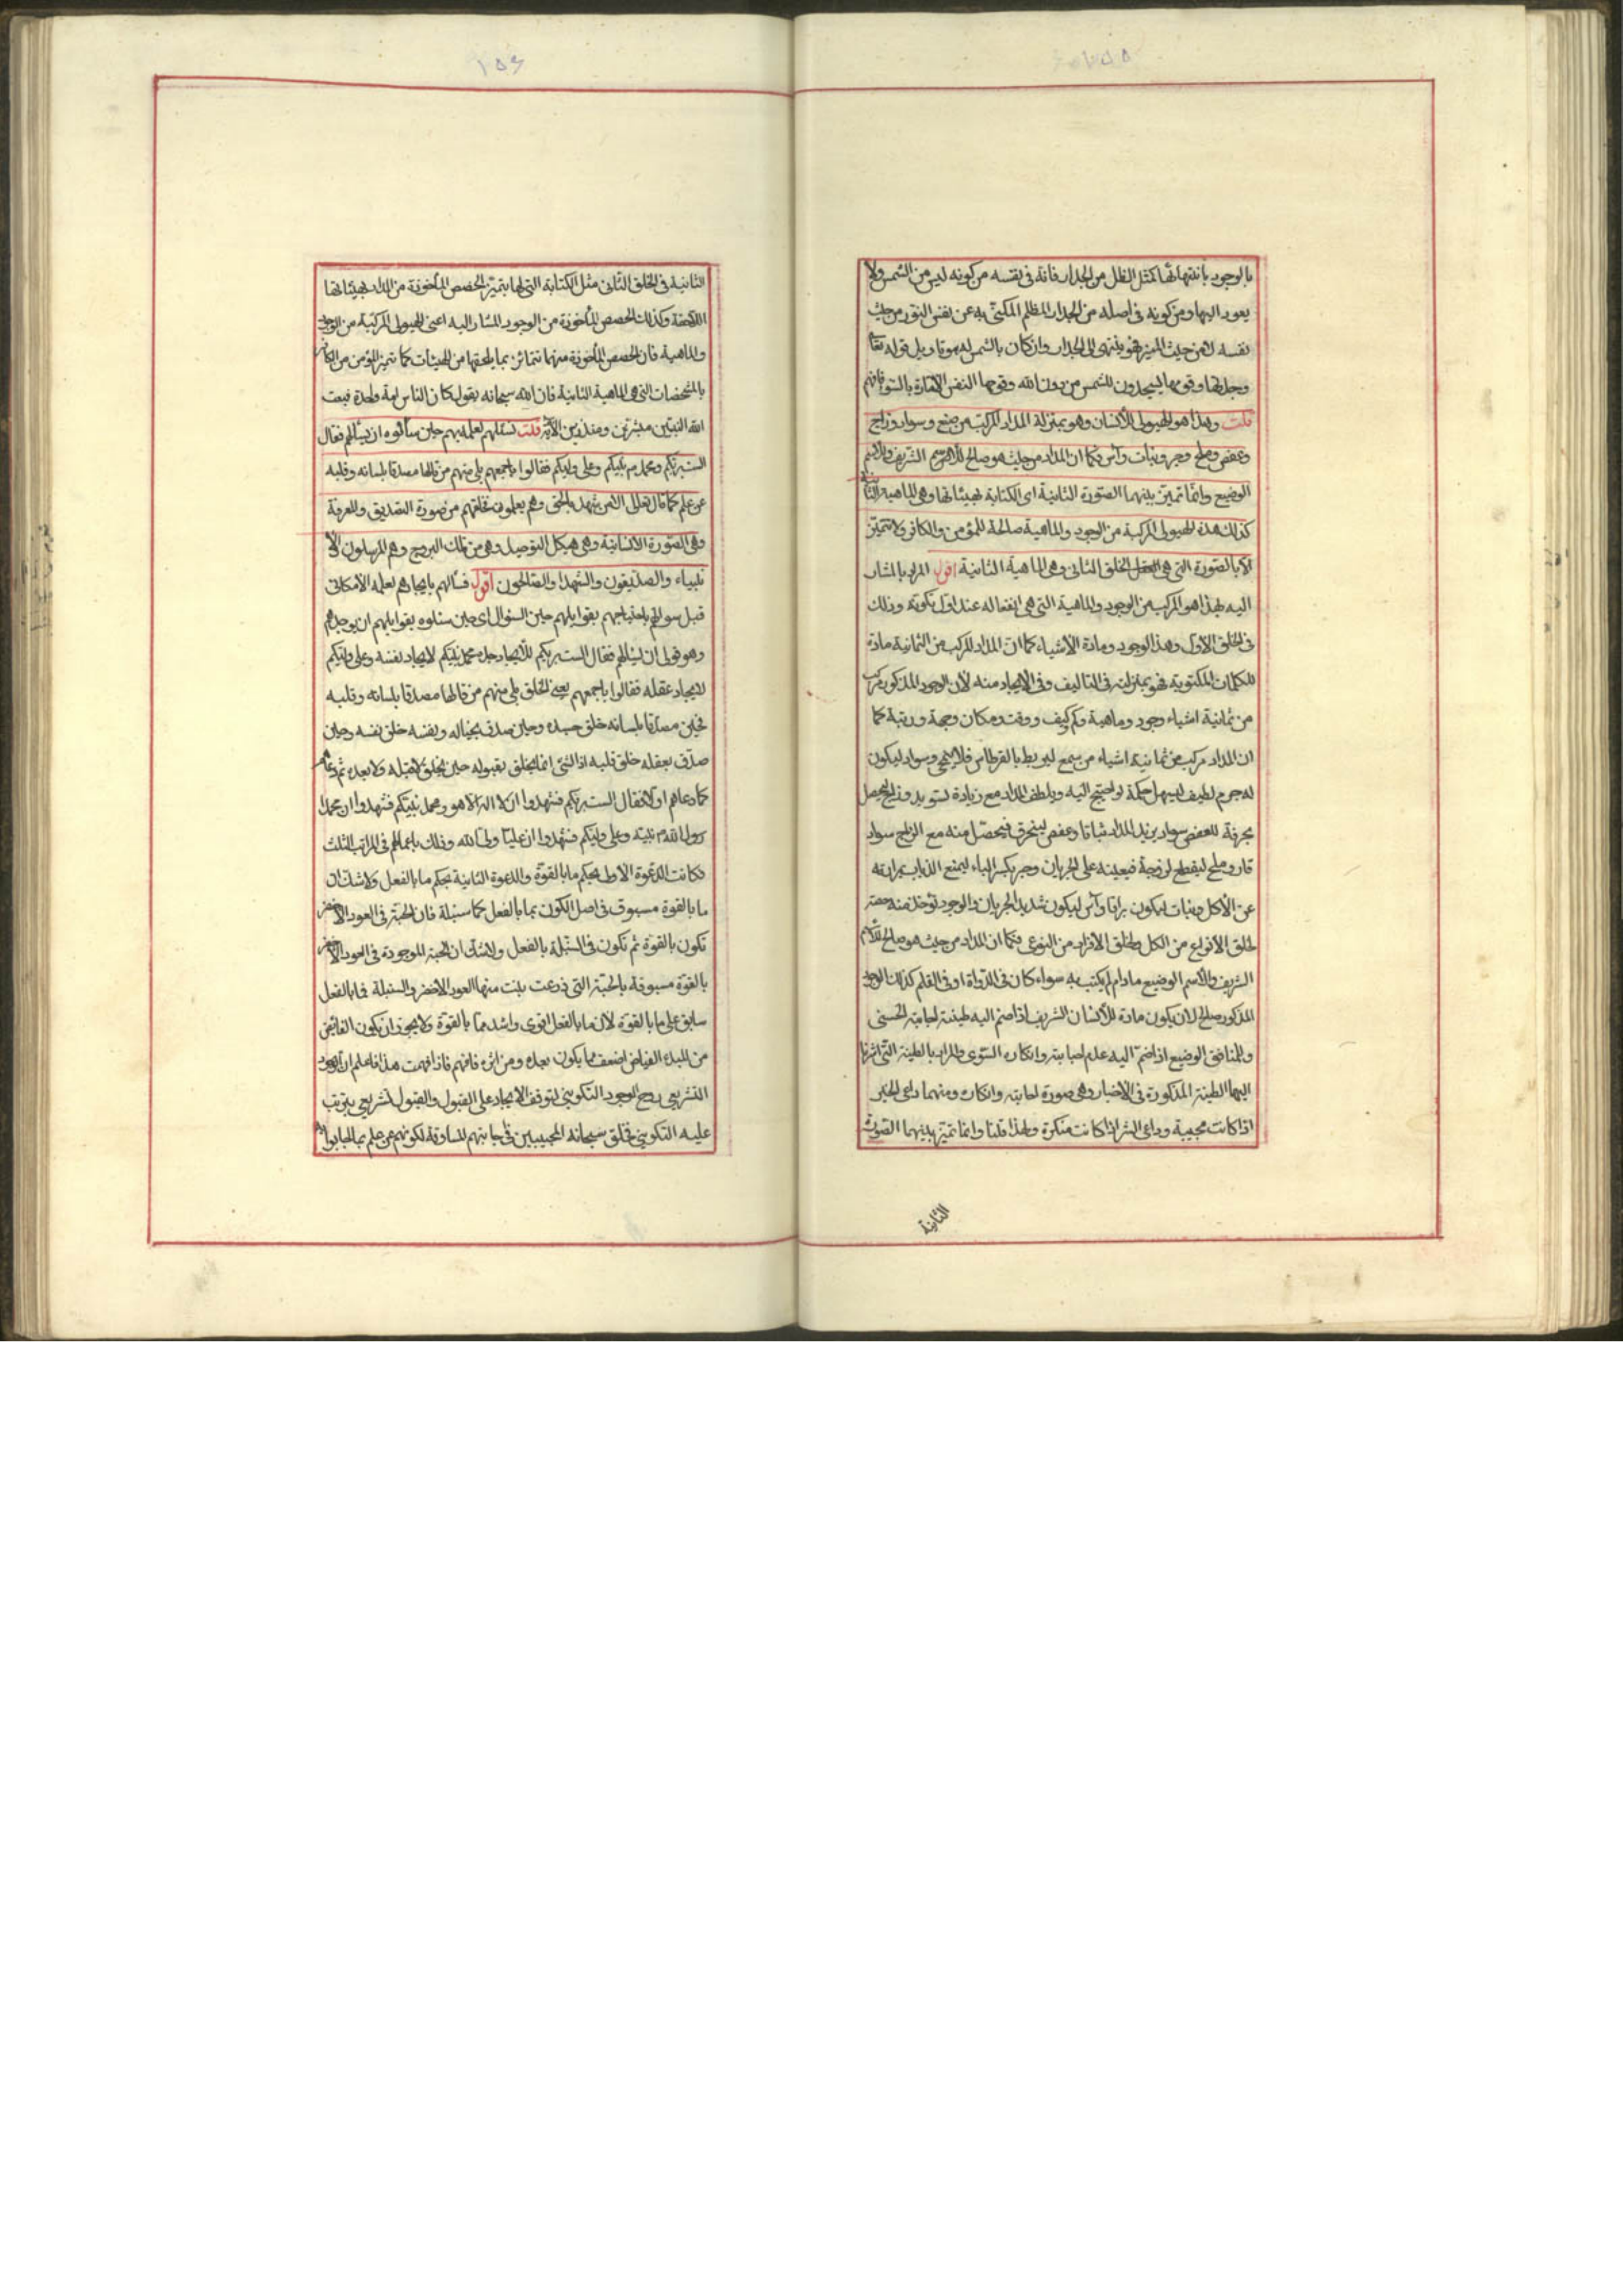 بالوجود بانتهائها كمثل الظل من الجدار فانه فى نفسه من كونه ليس من الشمس ولا
يعود اليها ومن كونه فى اصله من الجدار المظلم المكنى به عن نفس النور من حيث
نفسه لا من حيث المنير فهو ينتهى الى الجدار وان كان بالشمس تاويل قوله تعا
وجدتها وقومها يسجدون للشمس من دون الله وقومها النفس الامارة بالسوء فافهم
قلت وهذا هو الهيولى للانسان وهو بمنزلة المداد المركب من صمغ وسواد وزاج
وعفص وملح وصبر ونبات وآس فكما ان المداد من حيث هو صالح للاسم الشريف والاسم
الوضيع وانما تميز بينهما الصورة الثانية اى الكتابة بهيئاتها وهى الماهية الثانية
كذلك هذه الهيولى المركبة من الوجود والماهية صالحة للمؤمن والكافر ولا تتميز
الا بالصورة التى هى الخلق الثانى وهى الماهية الثانية اقول المراد بالمشار
اليه بهذا هو المركب من الوجود والماهية التى هى انفعاله عند اول تكونه وذلك
فى الخلق الاول وهذا الوجود ومادة الاشياء كما ان المداد المركب من الثمانية مادة
للكلمات المكتوبة فهو بمنزلته فى التاليف وفى الايجاد منه لان الوجود المذكور مركب
من ثمانية اشياء وجود وماهية وكم وكيف ووقت ومكان وجهة ورتبة كما
ان المداد مركب من ثمانية اشياء من صمغ ليربط بالقرطاس فلا ينمحى وسواد ليكون
له جرم لطيف ليسهل حكمه لو احتيج اليه ويلطف المداد مع زيادة تسويد وزاج ليحصل
بحرقة للعفص سواد يزيد المداد ثباتا وعفص لينحرق فيحصل منه مع الزاج سواد
قار وملح ليقطع لزوجة فيعينه على الجريان وصبر بكسر الباء ليمنع الذباب بمرارته
عن الاكل ونبات ليكون براقا وآس ليكون شديد الجريان والوجود تؤخذ منه حصة
لخلق الانواع من الكل ولخلق الافراد من النوع فكما ان المداد من حيث هو صالح للاسم
الشريف والاسم الوضيع مادام لم يكتب به سواء كان فى الدواة او فى القلم كذلك الوجود
المذكور صالح لان يكون مادة للانسان الشريف اذا ضم اليه طينة اجابته الحسنى
وللمنافق الوضيع اذا ضم اليه عدم اجابته وانكاره السوءى والمراد بالطينة التى اشرنا
اليها الطينة المذكورة فى الاخبار وهى صورة اجابته وانكاره ومنهما داعى الخير
اذا كانت مجيبة وداعى الشر اذا كانت منكرة ولهذا قلنا وانما تميز بينهما الصورة
الثانية
الثانية فى الخلق الثانى مثل الكتابة التى لها بتميز الحصص المأخوذة من المداد بهيئاتها
اللاحقة وكذلك الحصص المأخوذة من الوجود المشار اليه اعنى الهيولى المركبة من الوجود
والماهية فان الحصص المأخوذة منهما تتمائز بما يلحقها من الهيئات كما تميز المؤمن من الكافر
بالمشخصات التى هى الماهية الثانية فان الله سبحانه يقول كان الناس امة واحدة فبعث
الله النبيين مبشرين ومنذرين الآية قلت فسئلهم لعلمه بهم حين سألوه ان يسألهم فقال
الست بربكم ومحمد نبيكم وعلى وليكم فقالوا باجمعهم بلى منهم من قالها مصدقا بلسانه وقلبه
عن علم كما قال تعالى الا من شهد بالحق وهم يعلمون فخلقهم من صورة التصديق والمعرفة
وهى الصورة الانسانية وهى هيكل التوحيد وهى من فلك البروج وهم المرسلون والا
نبياء والصديقون والشهدا والصالحون اقول فسألهم بايجادهم لعلمه الامكانى
قبل سؤالهم باحتياجهم بقوابلهم حين السؤال اى حين سئلوه بقوابلهم ان يوجدهم
وهو قولى ان يسألهم فقال الست بربكم للايجاد جده محمد نبيكم لايجاد نفسه وعلى وليكم
لايجاد عقله فقالوا باجمعهم يعنى الخلق بلى منهم من قالها مصدقا بلسانه وقلبه
فحين مصدقا بلسانه خلق جسده وحين صدق بخياله ونفسه خلق نفسه وحين
صدق بعقله خلق قلبه اذ الشئ انما يخلق بقبوله حين يخلق لا قبله ولا بعده ثم دعاهم
كما دعاهم اولا فقال الست بربكم فشهدوا ان لا اله الا هو ومحمد نبيكم فشهدوا ان محمدا
رسول الله نبيه وعلى وليكم فشهدوا ان عليا ولى الله وذلك باعمالهم فى المراتب الثلث
فكانت الدعوة الاولى بحكم ما بالقوة والدعوة الثانية بحكم ما بالفعل ولا شك ان
ما بالقوة مسبوق فى اصل الكون بما بالفعل كما سنبلة فان الحبة فى العود الاخضر
تكون بالقوة ثم تكون فى السنبلة بالفعل ولا شك ان الحبة الموجودة فى العود الاخضر
بالقوة مسبوقة بالحبة التى زرعت بنت منها العود الاخضر والسنبلة فما بالفعل
سابق على ما بالقوة لان ما بالفعل اقوى واشد مما بالقوة ولا يجوز ان يكون الفائض
من المبدء الفياض اضعف مما يكون بعده ومن اثره فافهم فاذا فهمت هذا فاعلم ان الوجود
التشريعى روح الوجود التكوينى لتوقف الايجاد على القبول والقبول تشريعى يترتب
عليه التكوينى فخلق سبحانه المجيبين فى اجابتهم للمساوقة لكونهم عن علم بما اجابوا